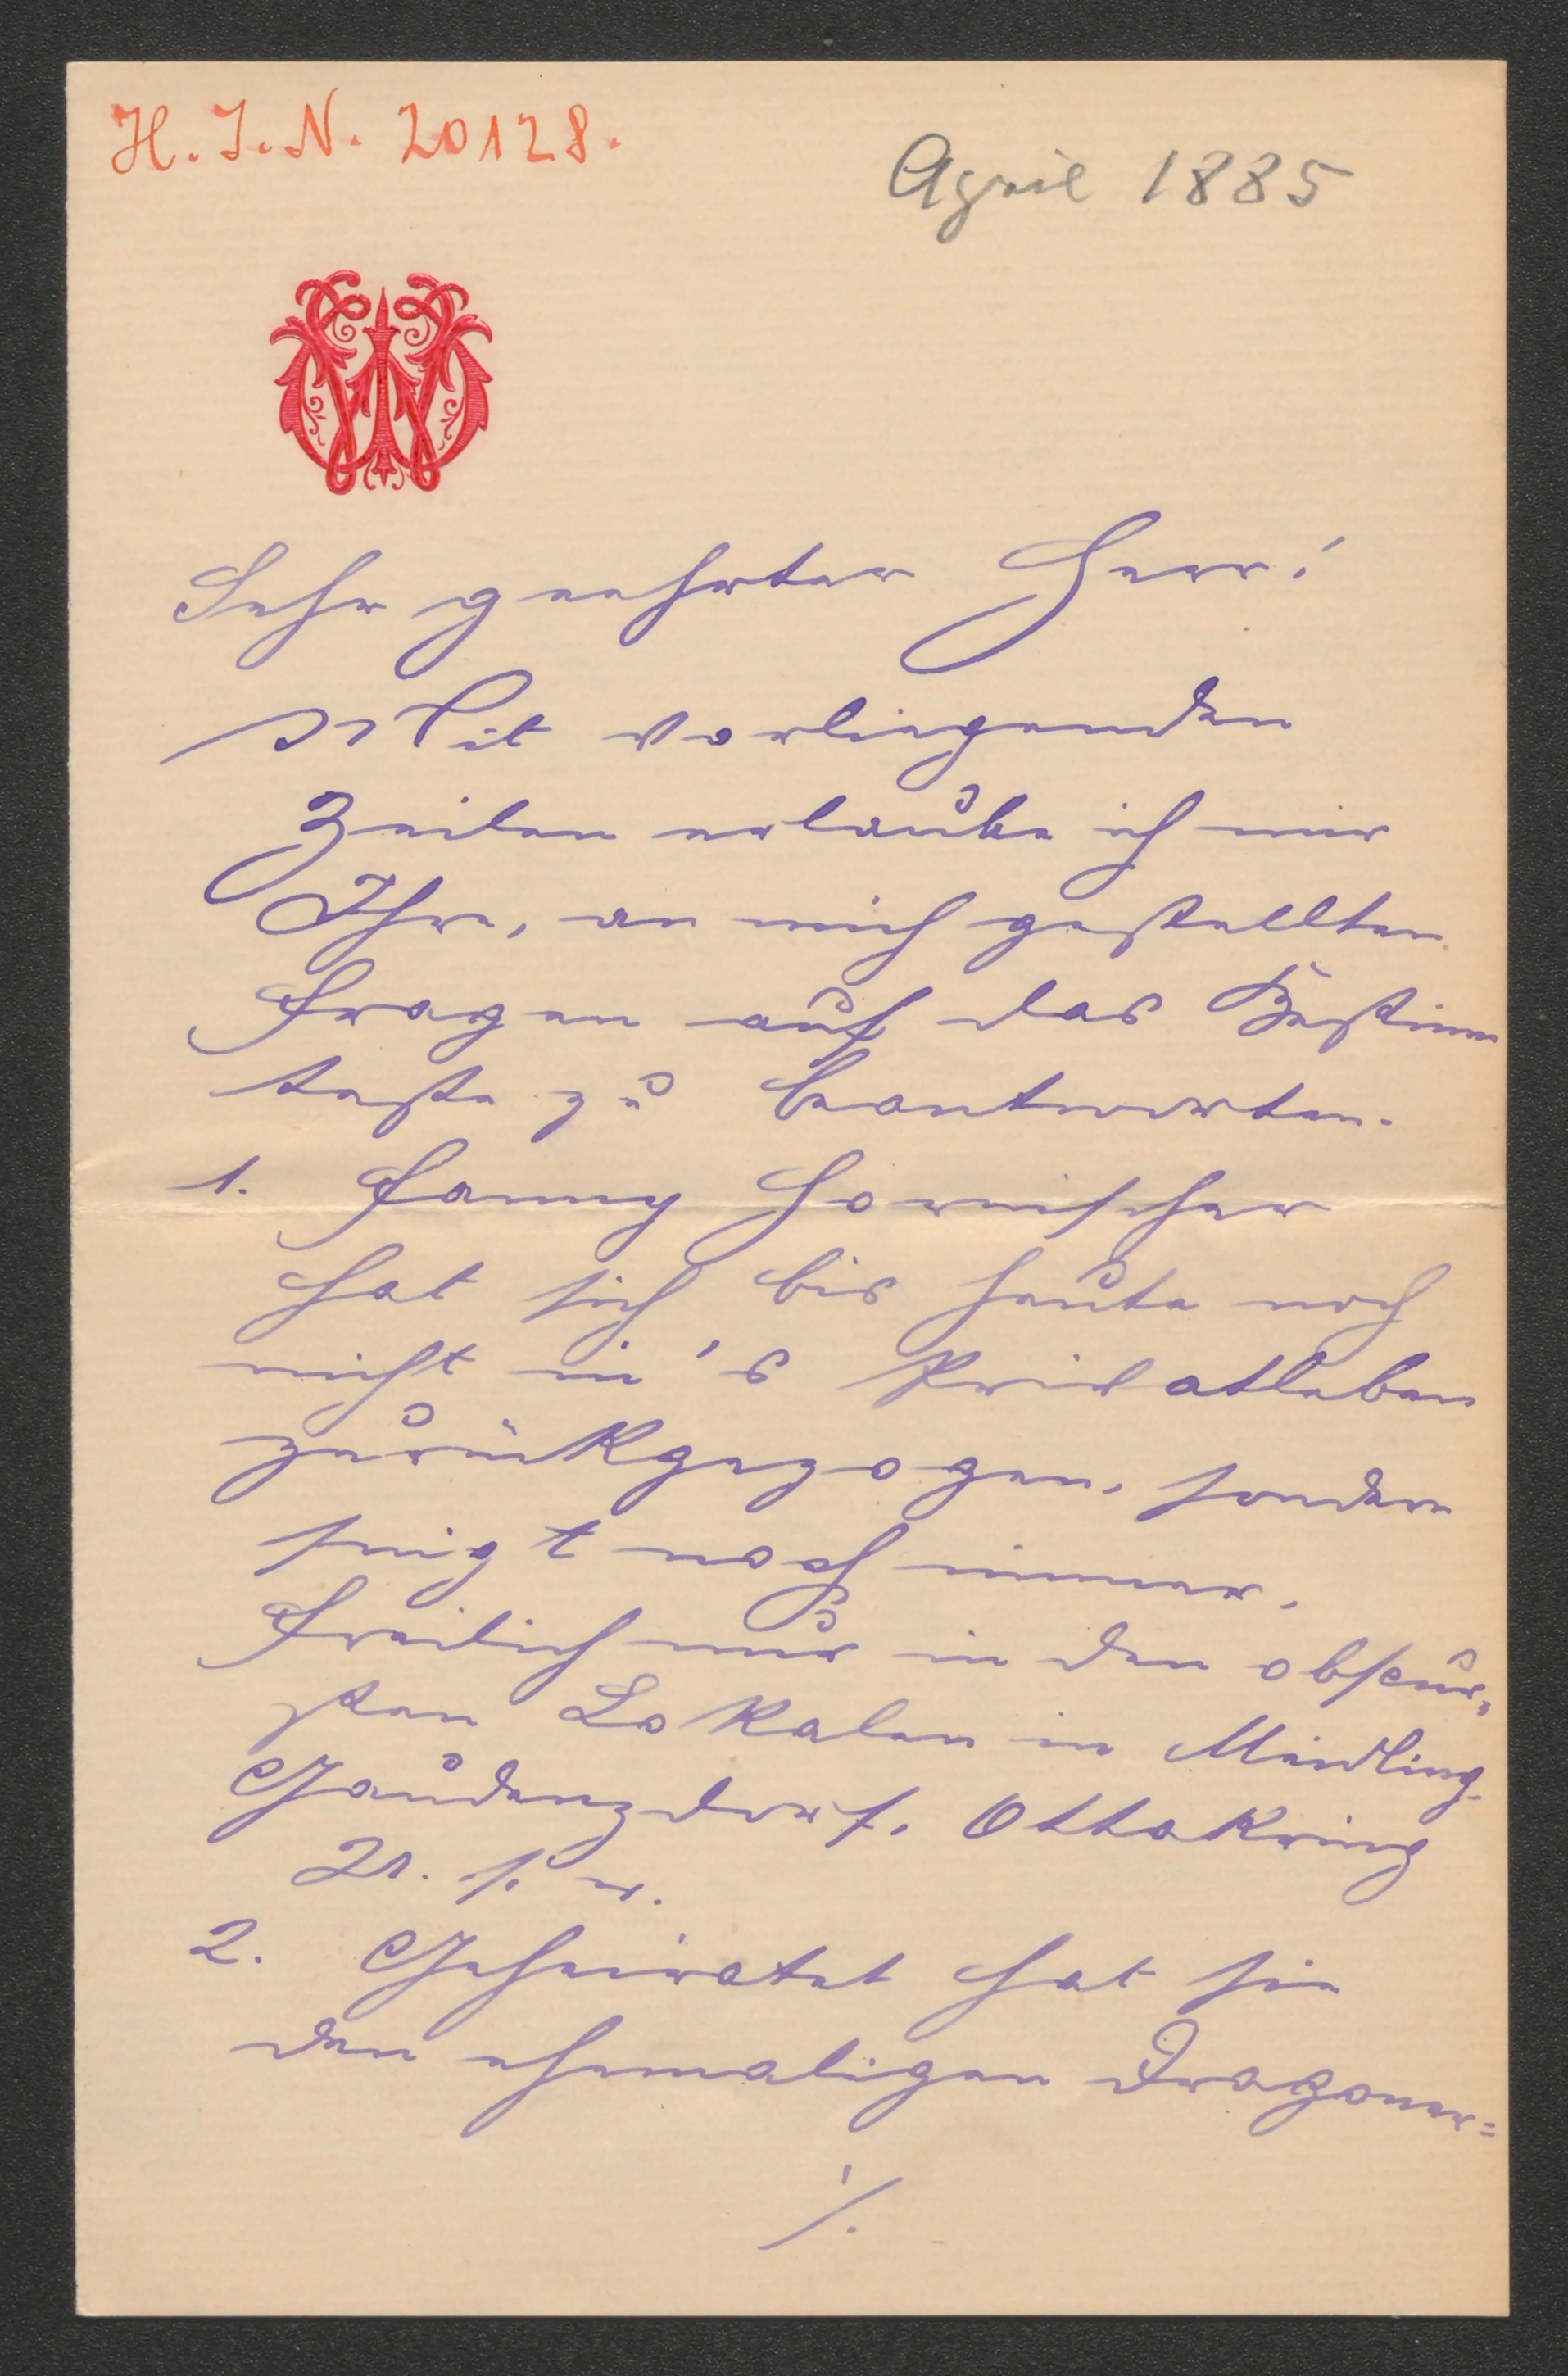 H. I. N. 20128.
April 1885
Sehr geehrter Herr!
Mit vorliegenden
Zeilen erlaube ich mir
Ihre, an mich gestellten
Fragen auf das Bestimm
teste zu beantworten.
1. Fanny Hornischer
hat sich bis heute noch
nicht in's Privatleben
zurückgezogen, sondern
singt noch immer,
freilich nur in den obscur-
sten Lokalen in Meidling,
Gaudenzdorf, Ottakring
u. s. w.
2. Geheiratet hat sie
den ehemaligen Dragoner=
./.